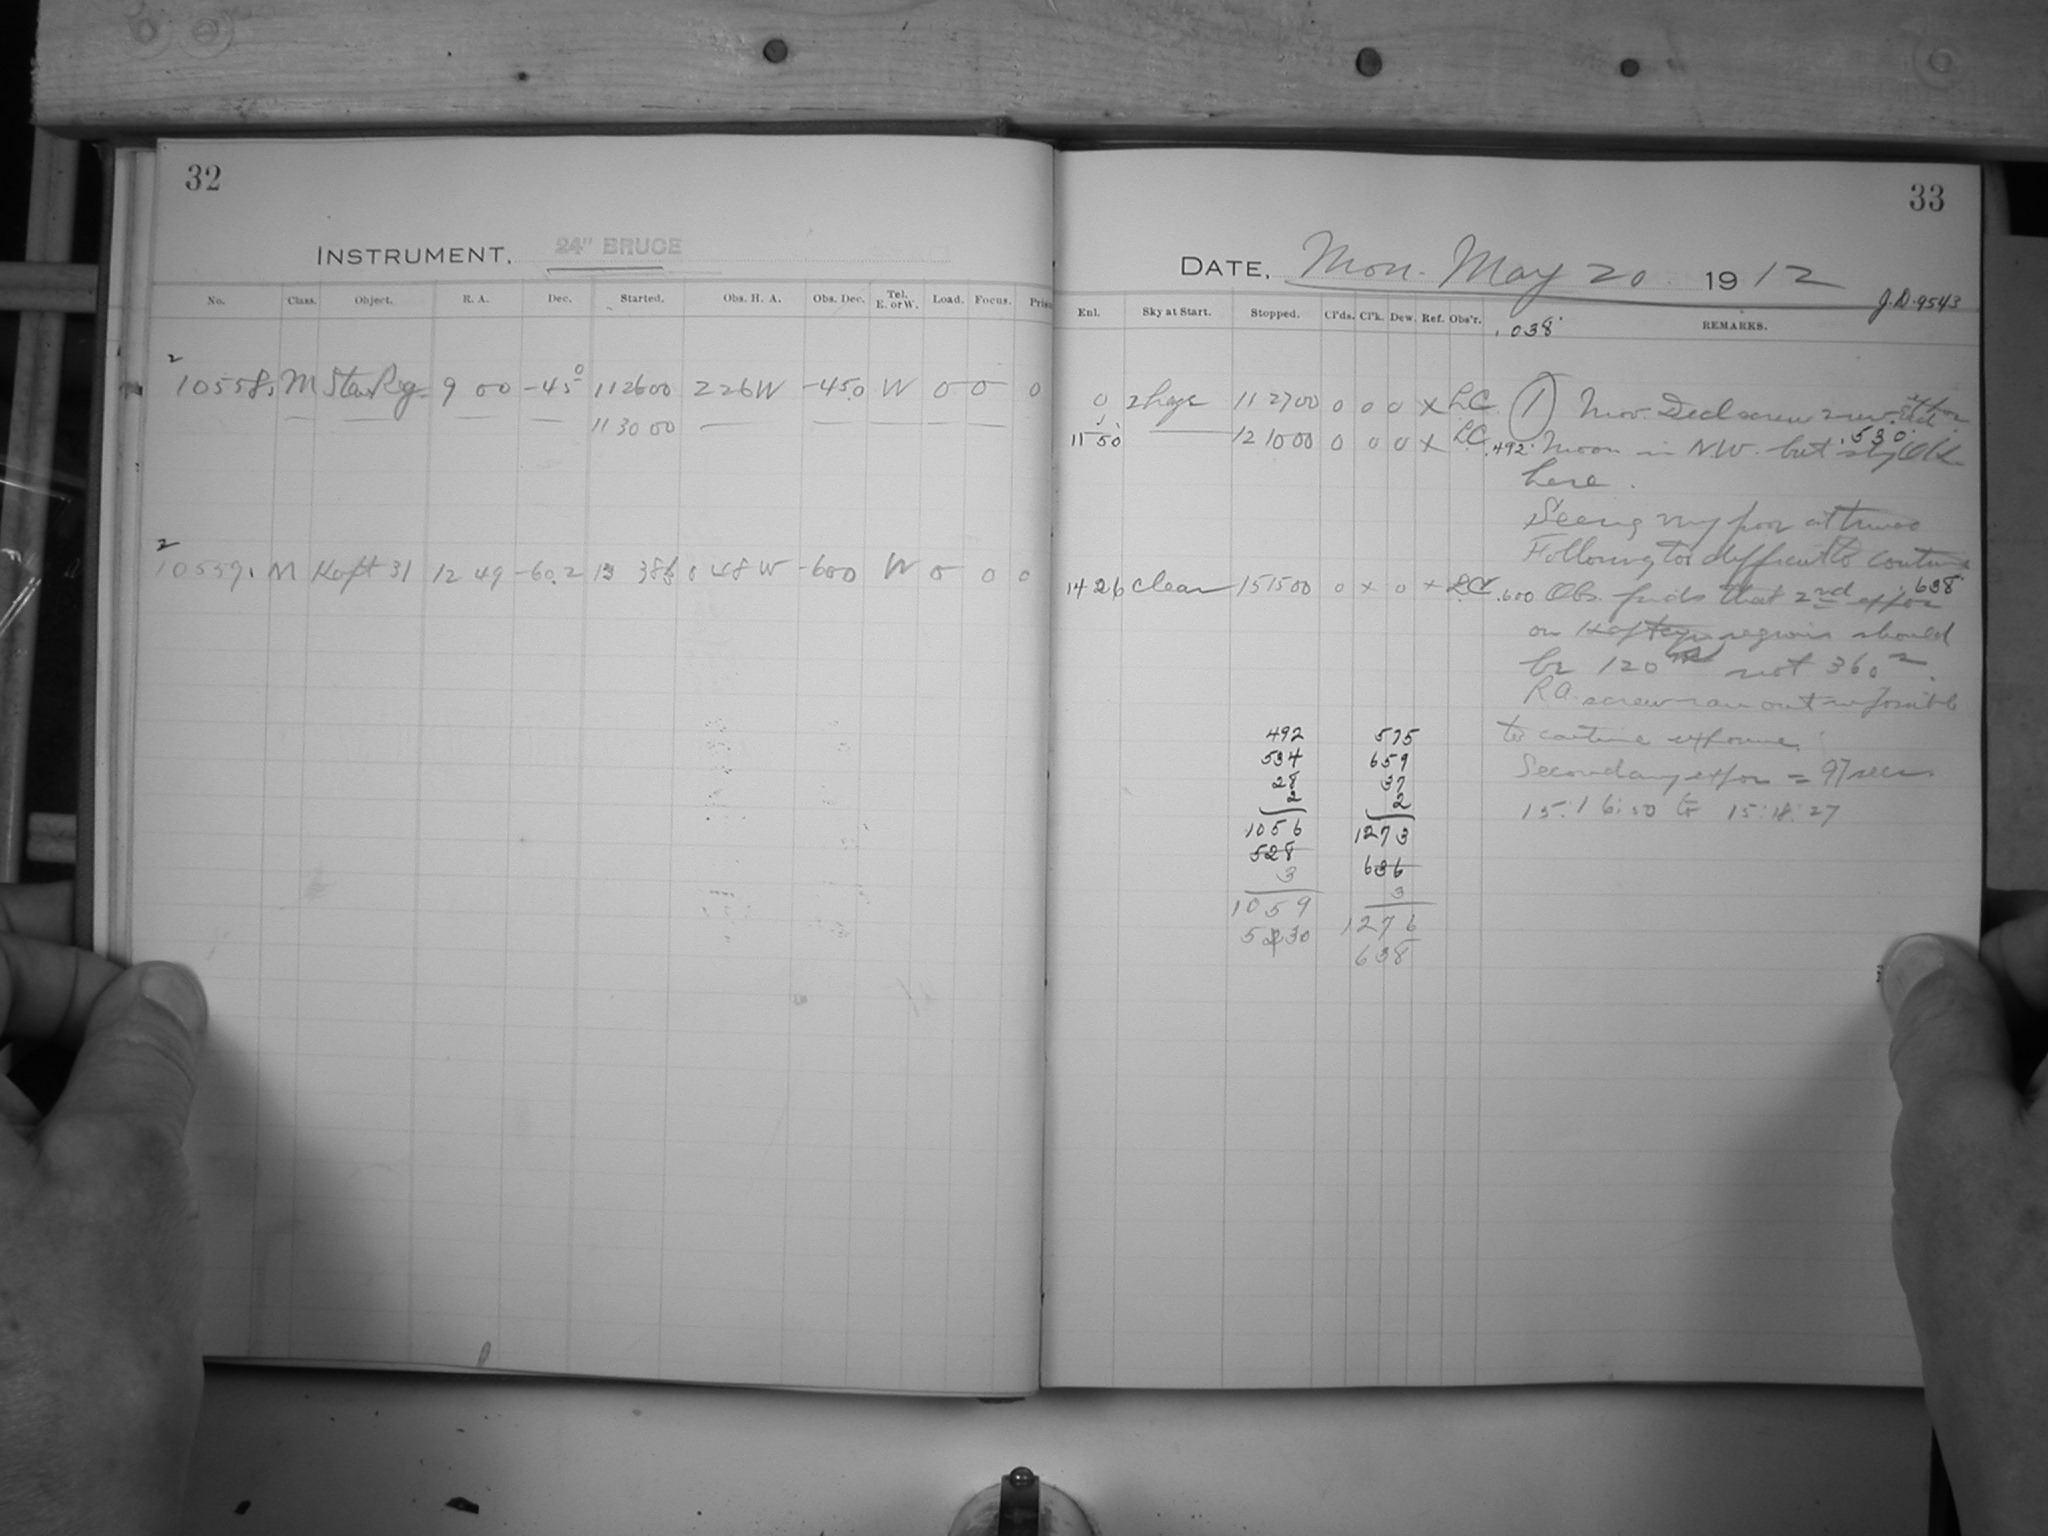 32
INSTRUMENT. 24" BRUCE
No. Class. Object. R. A. Dec. Started. Obs. H. A. Obs. Dec. Tel. E. or W. Load. Focus.
2
10558. M Star Reg. 9 00 -45 0 11 26 00 2 26 W -45.0 W 0 0 0
11 30 00
2
10559. M Kapt 31 12 49 -60.2 13 48 W -600 W 0 0 0
33
DATE. Mon. May 20 1912
J.D. 9543
Enl. Sky at Start. Stopped. Cl'ds. Cl'k. Dew. Ref. Obs'r. REMARKS.
.038
0 2 haze 11 27 00 0 0 0 X LC (1) Mov. Decl screw
11 50 12 10 00 0 0 0 X LC .492 Moon in NW. but sky OK .530
here.
Seeing very poor at times
Following too difficult to continue
14 26 clear 15 15 00 0 x 0 x LC .600 Obs. finds that 2nd expos .638
on Kapteyn regions should
be 120 not 360
R.A. screw ran out impossible
to continue exposure.
Secondary expos = 97 secs
15:16:50 to 15:18:27
492 575
534 659
28 37
2 2
1056 1273
528 636
3 3
1059 1276
530 638